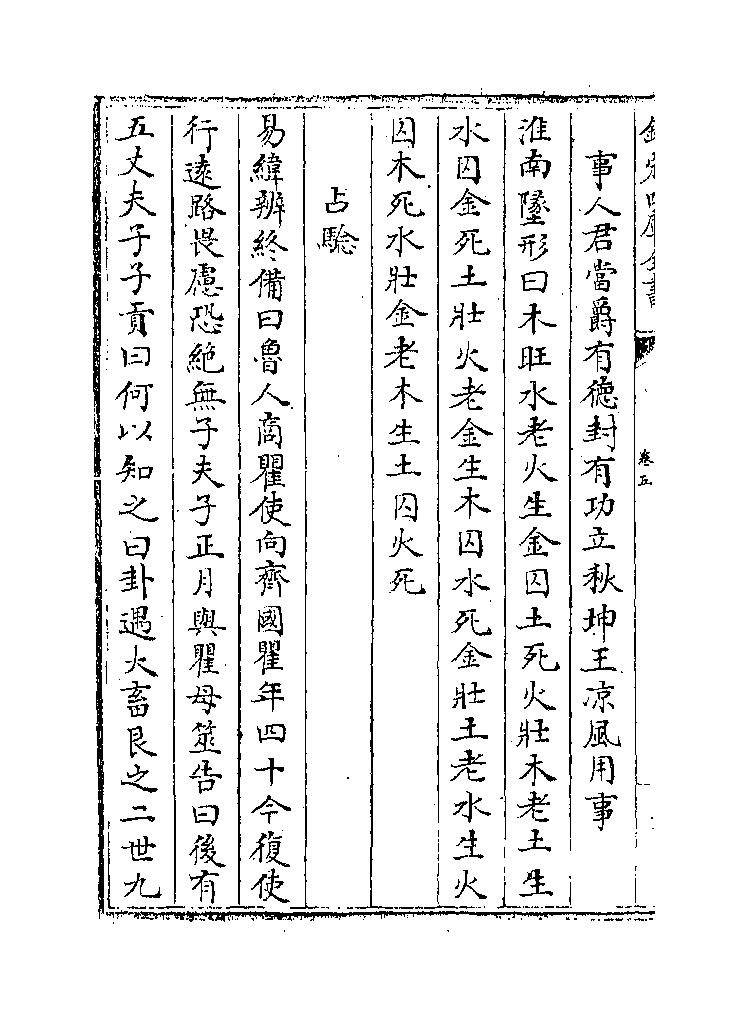 欽定四庫全書
卷五
事人君當爵有德封有功立秋坤王凉風用事
淮南墬形曰木旺水老火生金囚土死火壯木老土生
水囚金死土壯火老金生木囚水死金壯土老水生火
囚木死水壯金老木生土囚火死
占驗
易緯辨終備曰魯人商瞿使向齊國瞿年四十今復使
行遠路畏慮恐絶無子夫子正月與瞿母筮告曰後有
五丈夫子子貢曰何以知之曰卦遇大畜艮之二世九